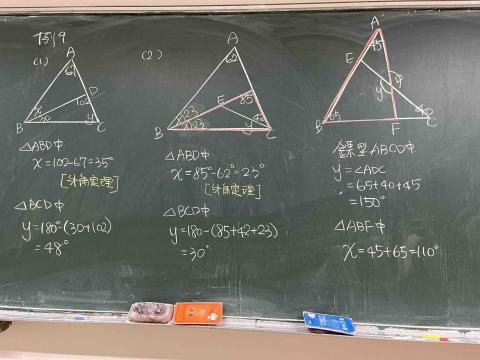 例9
(1)
A
67
D
102
x
30
y
B
C
△ABD中
x=102-67=35°
[外角定理]
△BCD中
y=180°(30+102)
=48°
(2)
A
62
E
85
23
23
42
B
C
△ABD中
x=85°-62°=23°
[外角定理]
△BCD中
y=180-(85+42+23)
=30°
A
45
E
y
65
40
B
F
C
ABCD中
y=∠ADC
=65+40+45
=150°
△ABF中
x=45+65=110°